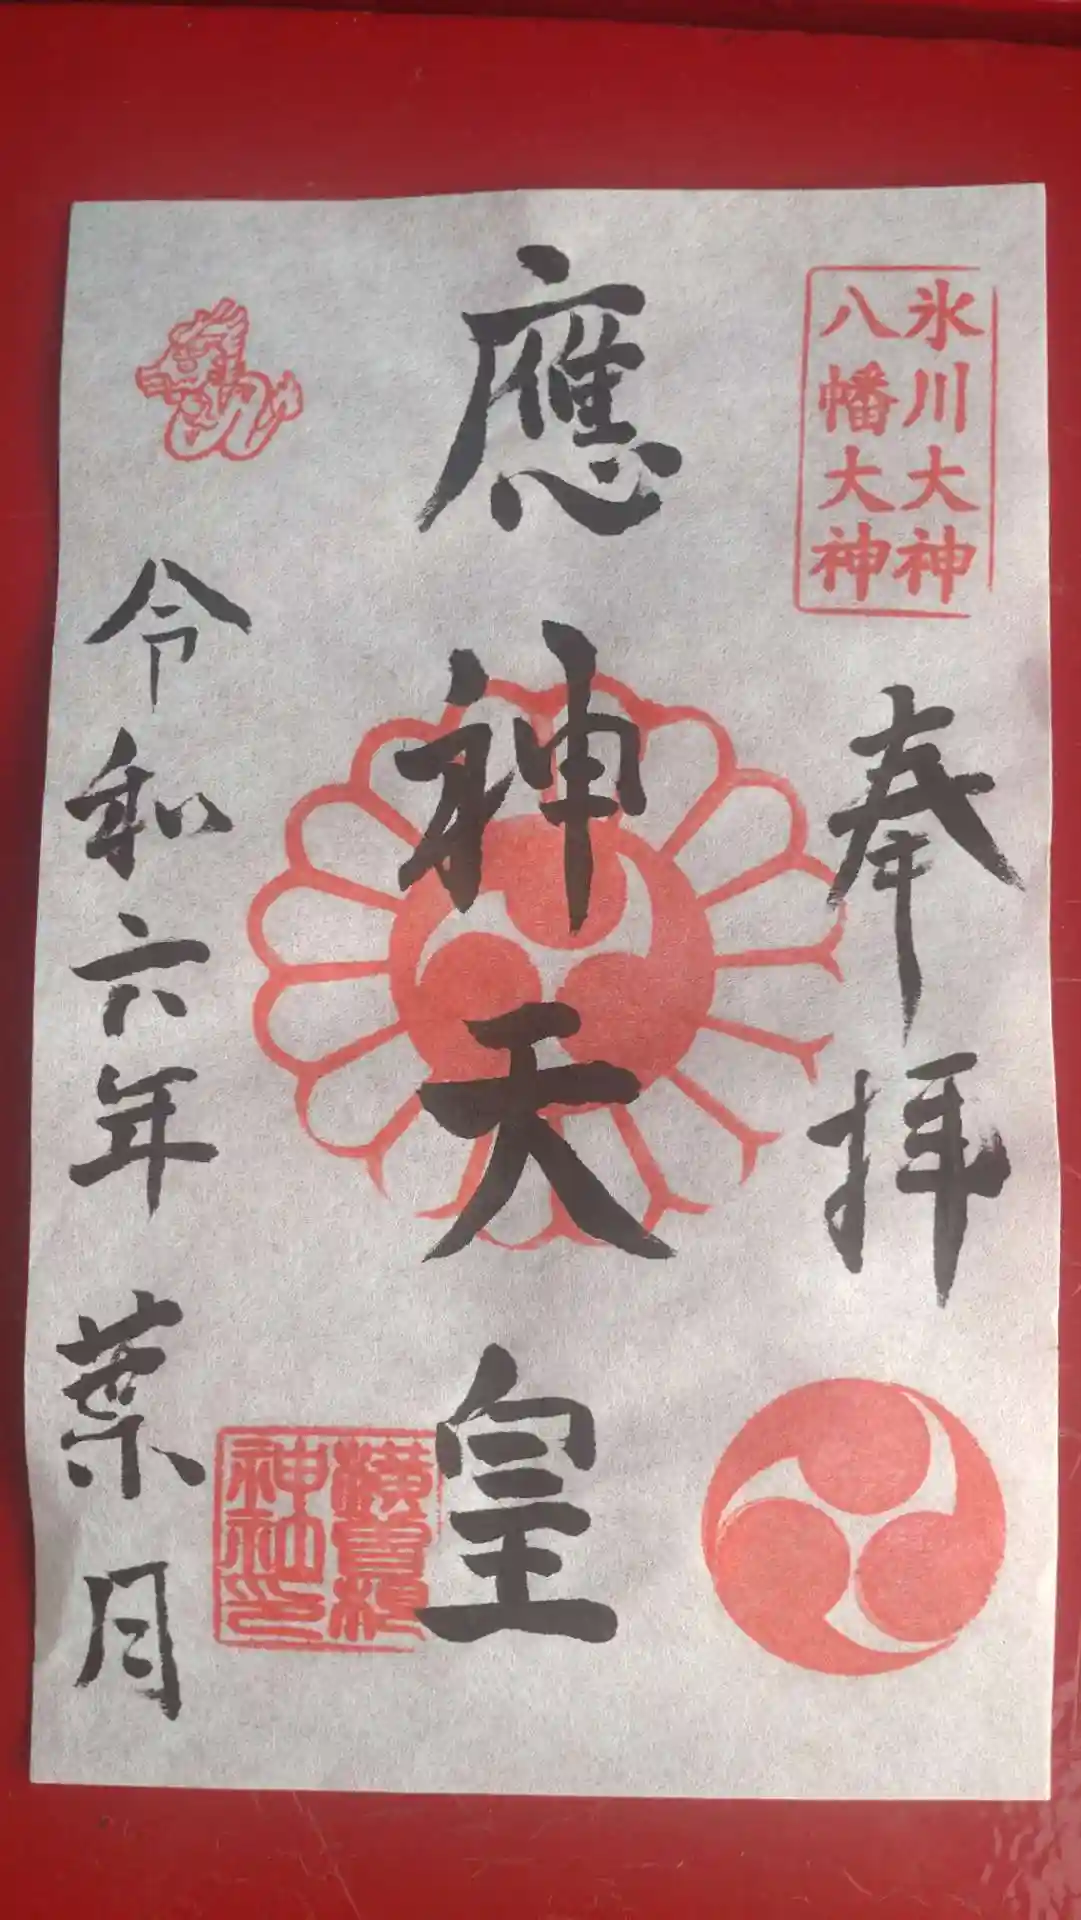 氷川大神
八幡大神
奉拝
應神天皇
令和六年
葉月
横曽根
神社之印